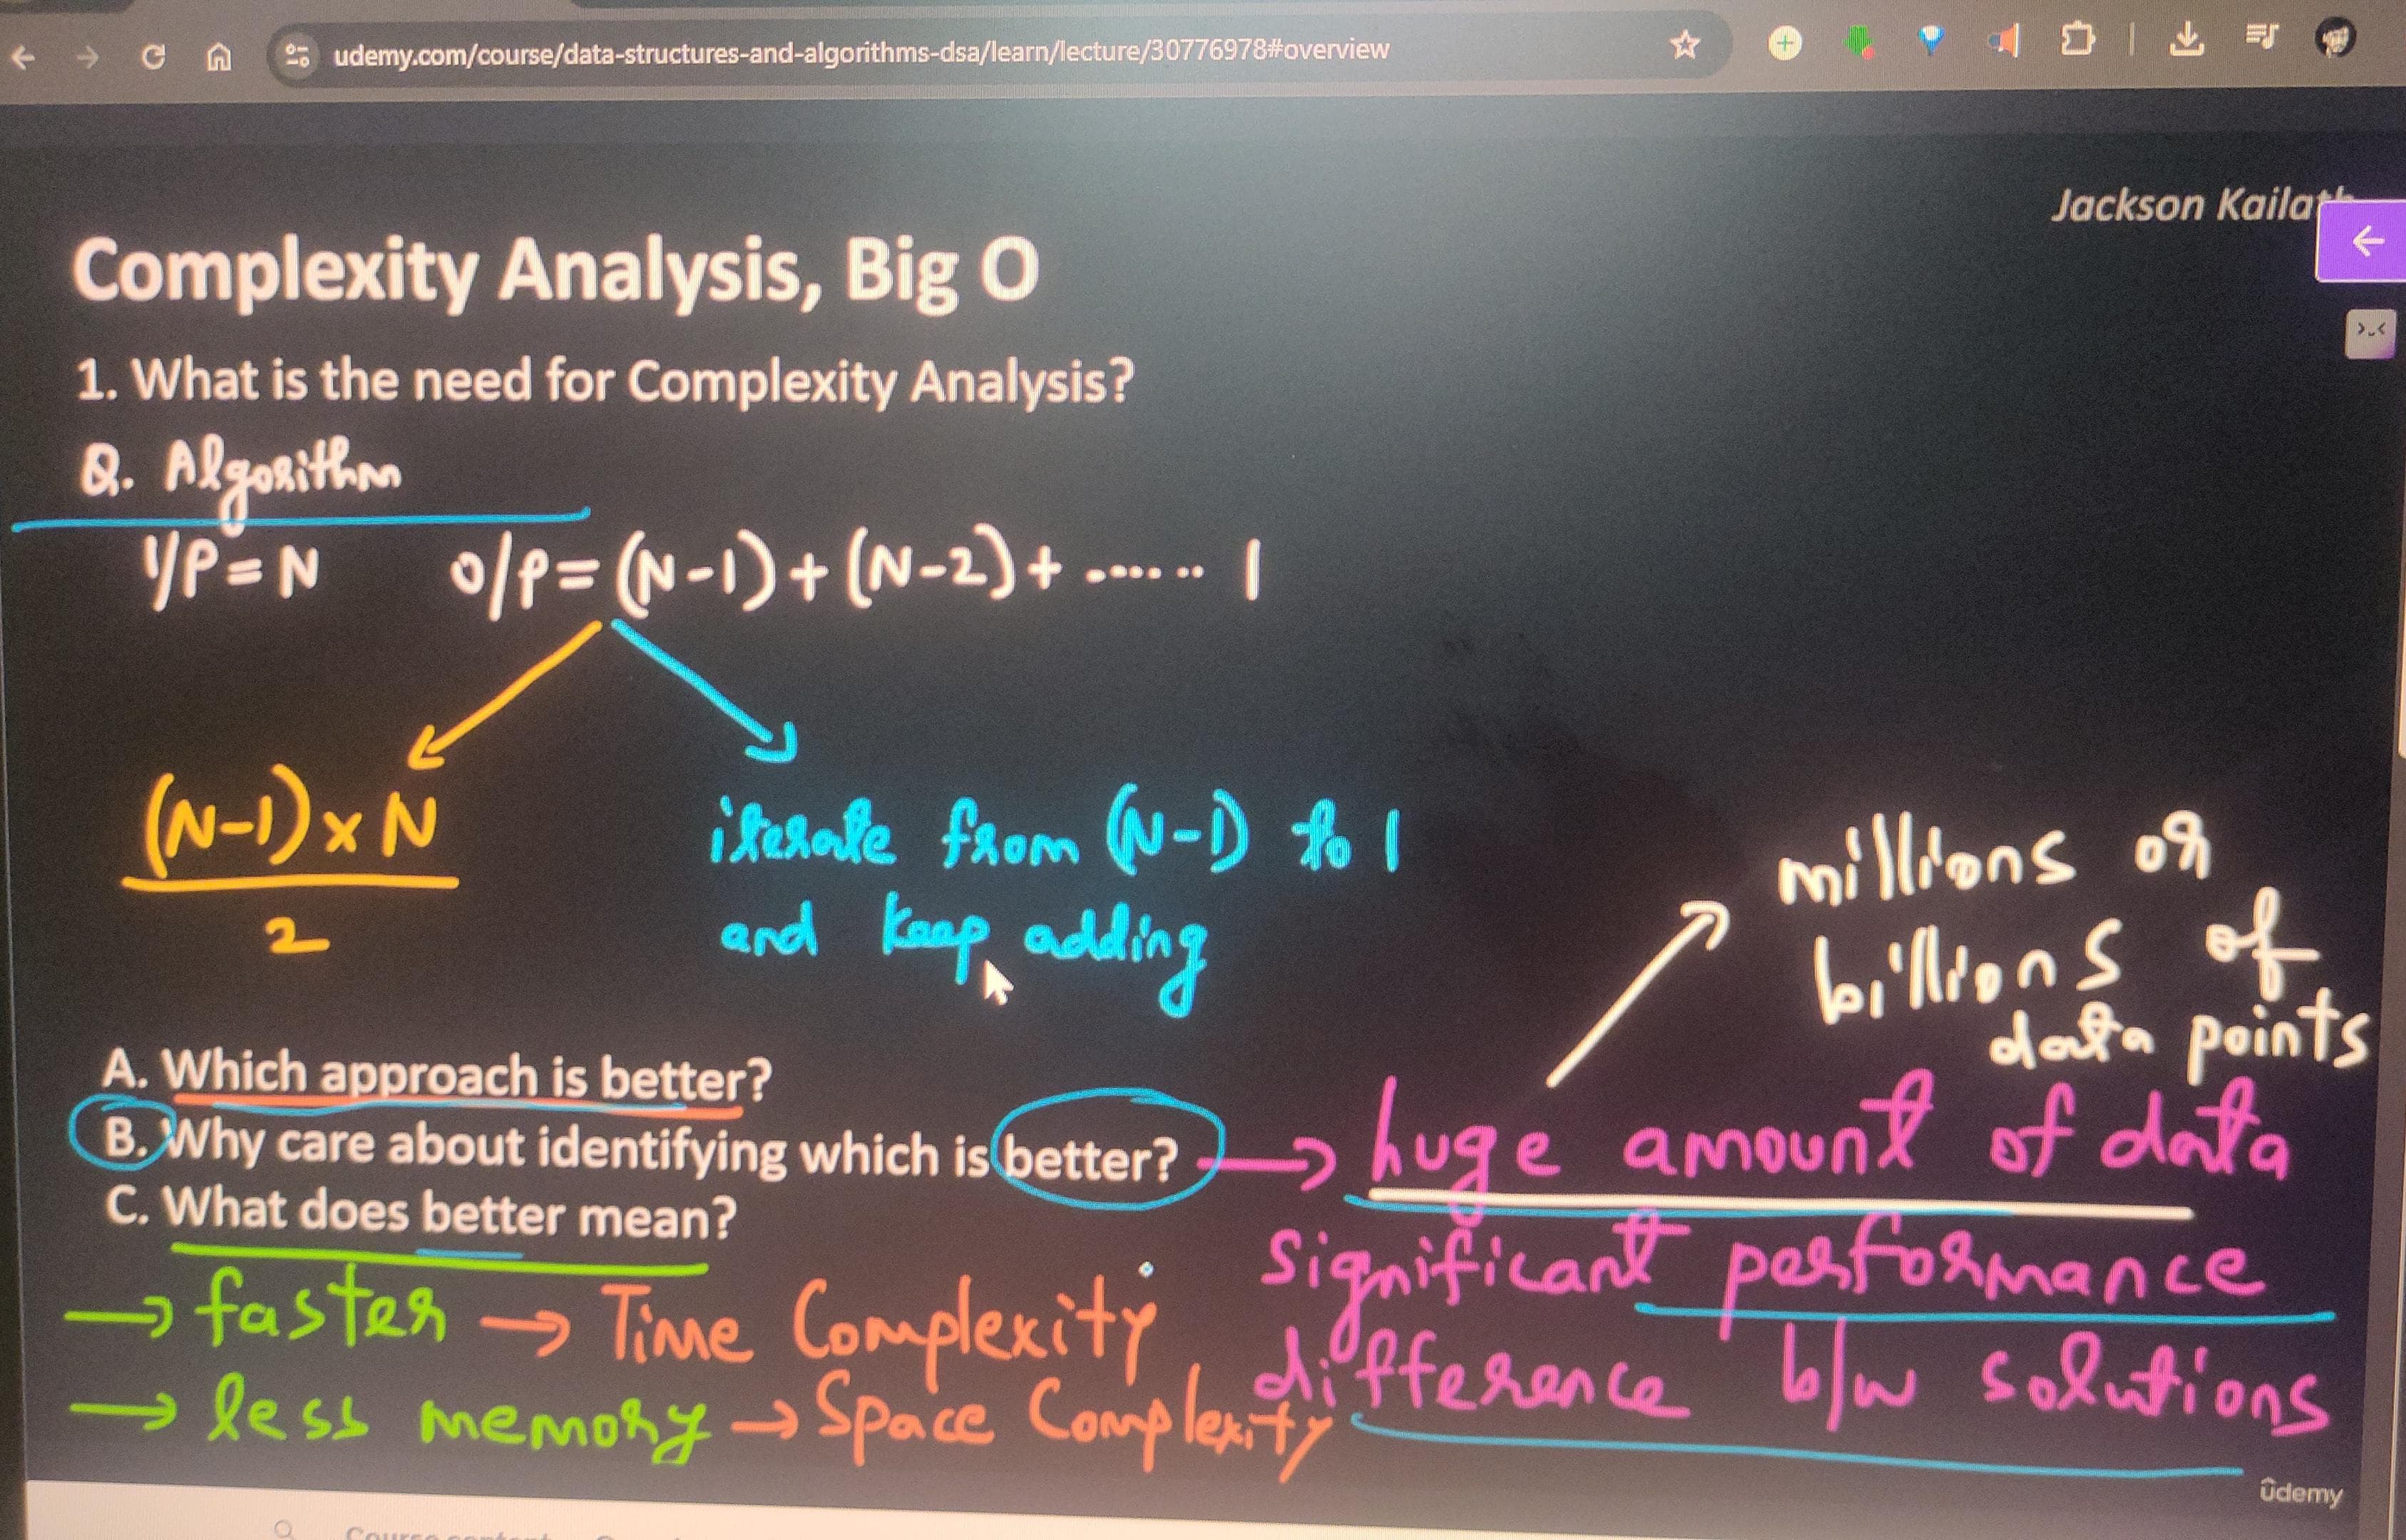 udemy.com/course/data-structures-and-algorithms-dsa/learn/lecture/30776978#overview
Jackson
Complexity Analysis, Big O
1. What is the need for Complexity Analysis?
Q. Algorithm
I/P = N O/P = (N-1) + (N-2) + ...... 1
(N-1) x N
2
iterate from (N-1) to 1
and keep adding
millions or
billions of
data points
A. Which approach is better?
B. Why care about identifying which is better? → huge amount of data
C. What does better mean?
significant performance
difference b/w solutions
→ faster → Time Complexity
→ less memory → Space Complexity
ûdemy